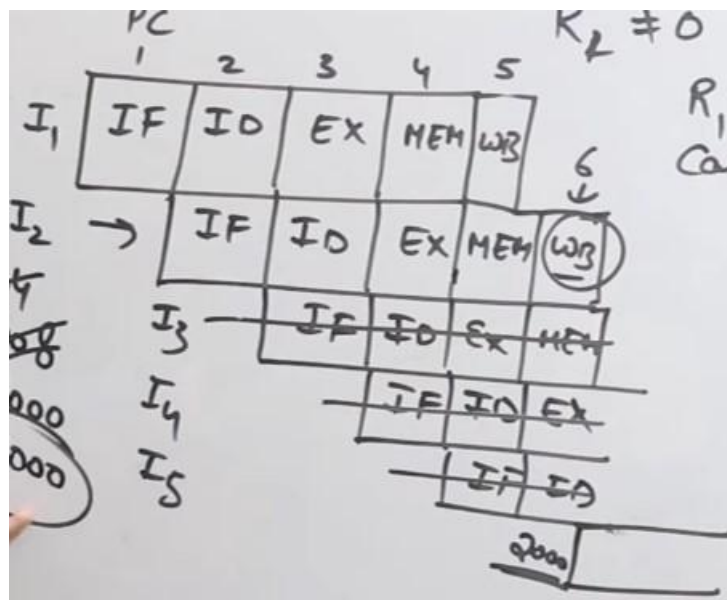 PC
R₂ ≠ 0
1 2 3 4 5
R₁
I₁ IF ID EX MEM WB
Ca
6
I₂ → IF ID EX MEM WB
4
I₃ IF ID EX MEM
08
I₄ IF ID EX
000
I₅ IF ID
000
2000